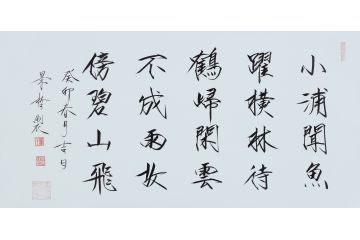 小浦聞魚
躍橫林待
鶴歸閑雲
不成雨故
傍碧山飛
癸卯春月吉日